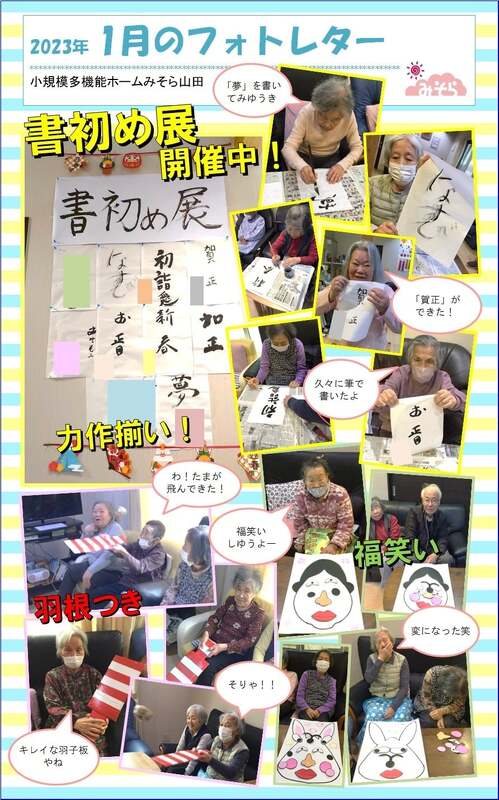 2023年 1月のフォトレター
小規模多機能ホームみそら山田
みそら
「夢」を書い
てみゆうき
書初め展
開催中！
書初め展
賀正
初詣
迎新春
なすび
お正月
賀正
夢
なすび
賀正
「賀正」が
できた！
久々に筆で
書いたよ
お正月
力作揃い！
わ！たまが
飛んできた！
福笑い
しゆうよー
福笑い
羽根つき
変になった笑
そりゃ！！
キレイな羽子板
やね